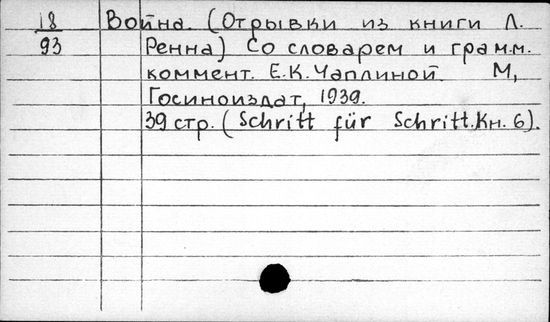 18 Война. (Отрывки из книги Л.
93 Ренна) Со словарем и грамм.
коммент. Е.К.Чаплиной М,
Госиноиздат, 1939.
39 стр. (Schritt für Schritt.Кн. 6).